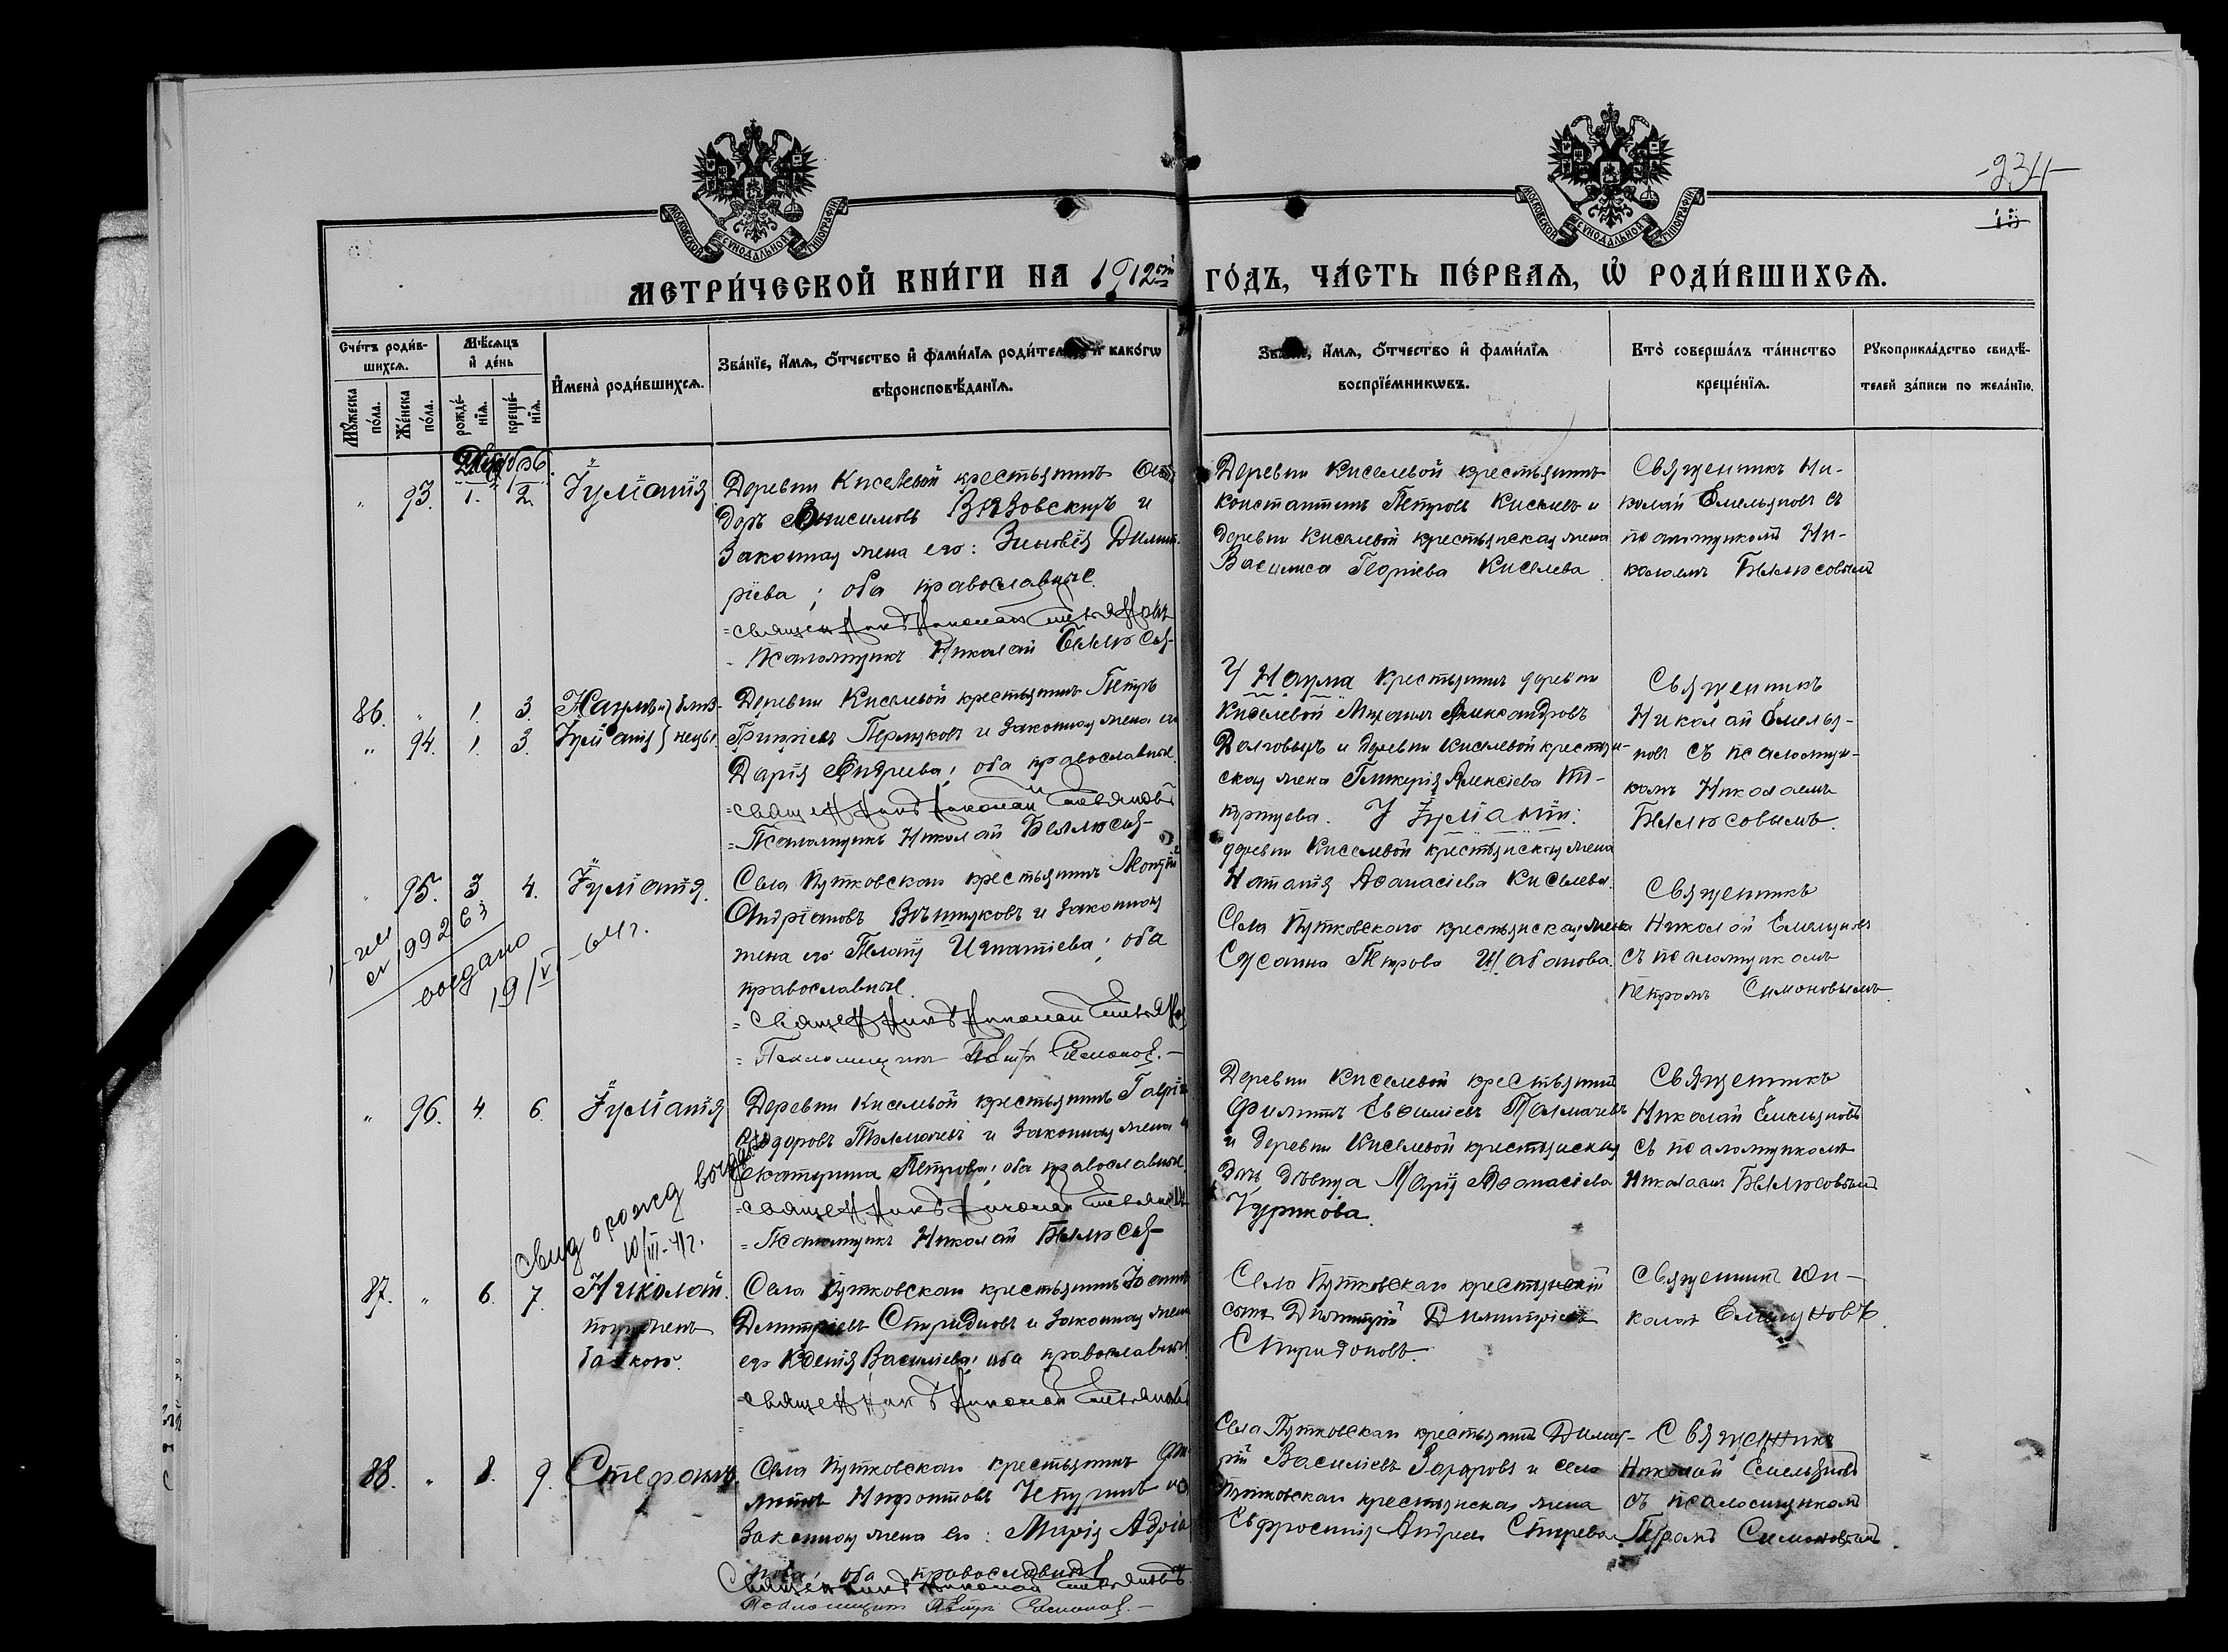 -234-
15
МОСКОВСКОЙ СУНОДАЛЬНОЙ ТИПОГРАФІИ
МОСКОВСКОЙ СУНОДАЛЬНОЙ ТИПОГРАФІИ
МЕТРИ́ЧЕСКОЙ КНИ́ГИ НА 1912ый ГО́ДЪ, ЧА́СТЬ ПЕ́РВАЯ, Ѡ РОДИ́ВШИХСЯ.
Сче́тъ роди́в-
шихся.
Мѣ́сяцъ
и де́нь
Му́жеска
по́ла.
Же́нска
по́ла.
рожде́-
нія.
креще́-
нія.
Имена̀ роди́вшихся.
Зва́ніе, и́мя, о́тчество и фами́лія роди́телей и како́гѡ
вѣроисповѣ́данія.
Зва́ніе, и́мя, о́тчество и фами́лія
воспріе́мникѡвъ.
Кто̀ соверша́лъ та́инство
креще́нія.
Рукоприкла́дство свидѣ́-
телей за́писи по жела́нію.
Декабрь
" 93. 1. 2. Іуліанія
Деревни Киселевой крестьянинъ
доръ Анисимовъ Вязовскихъ и
законная жена его: Зиновія Димит-
ріева; оба православные.
=Священникъ Николай Емельяновъ
- Псаломщикъ Николай Бѣлюсовъ
Деревни Киселевой крестьянинъ
Константинъ Петровъ Киселевъ и
деревни Киселевой крестьянская жена
Василиса Георгіева Киселева.
Священникъ Ни-
колай Емельяновъ съ
псаломщикомъ Ни-
колаемъ Бѣлюсовымъ
86. " 1. 3. Наумъ и } близ-
" 94. 1. 3. Іуліанія } нецы.
Деревни Киселевой крестьянинъ Петръ
Григоріевъ Пермяковъ и законная жена его
Дарія Андреева; оба православные.
=Священникъ Николай Емельяновъ
=Псаломщикъ Николай Бѣлюсовъ
У Наума крестьянинъ деревни
Киселевой Михаилъ Александровъ
Долговыхъ и деревни Киселевой крестьян-
ская жена Гликерія Алексіева
У Іуліаніи:
деревни Киселевой крестьянская жена
Наталія Аѳанасіева Киселева.
Священникъ
Николай Емелья-
новъ съ псаломщи-
комъ Николаемъ
Бѣлюсовымъ.
" 95. 3 4. Іуліанія.
Села Путковскаго крестьянинъ
Андріановъ и законная
жена его Игнатіева; оба
православные.
= Священникъ Николай Емельяновъ
= Псаломщикъ Петръ Симоновъ.-
Села Путковскаго крестьянская жена
Сусанна Петрова Шабанова.
Священникъ
Николай Емельяновъ
съ псаломщикомъ
Петромъ Симоновымъ.
199263
выдано
19/V-64г.
" 96. 4. 6. Іуліанія
Деревни Киселевой крестьянинъ Гавріилъ
Ѳеодоровъ Толмачевъ и законная жена
Екатерина Петрова; оба православные.
=Священникъ Николай Емельяновъ
=Псаломщикъ Николай Бѣлюсовъ
Деревни Киселевой крестьянинъ
Филиппъ Евѳиміевъ Толмачевъ
и деревни Киселевой крестьянская
дочь дѣвица Марія Аѳанасіева
Чурикова.
Священникъ
Николай Емельяновъ
съ псаломщикомъ
Николаемъ Бѣлюсовымъ
Свид о рожд выдано
10/III-41г.
87. " 6. 7. Николай
погруженъ
бабкою.
Села Путковскаго крестьянинъ Іоаннъ
Димитріевъ Спиридоновъ и законная жена
его Ксенія Василіева; оба православные
=Священникъ Николай Емельяновъ
=
Села Путковскаго крестьянскій
сынъ Димитрій Димитріевъ
Спиридоновъ.
Священникъ Ни-
колай Емельяновъ.
88. " 8. 9. Стефанъ
Села Путковскаго крестьянинъ Фи-
липпъ Нифонтовъ и
законная жена его: Марія Адріа-
нова; оба православные
Священникъ Николай Емельяновъ.
Псаломщикъ Петръ Симоновъ.-
Села Путковскаго крестьянинъ Димит-
рій Василіевъ Захаровъ и села
Путковскаго крестьянская жена
Евфросинія Андреева
Священникъ
Николай Емельяновъ
съ псаломщикомъ
Петромъ Симоновымъ.